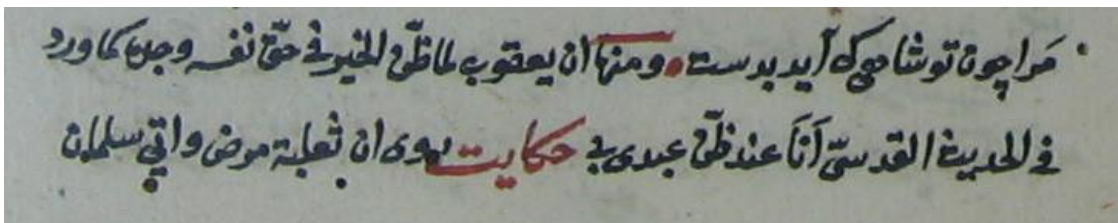 مرا چون تو شاهی که آید بدست ومنها ان يعقوب لما ظنّ الخير فى حقّ نفسه وجده كما ورد
فى الحديث القدسىّ أنا عند ظنّ عبدى بى حكايت روى ان ثعلبة مرض واتى سلمان